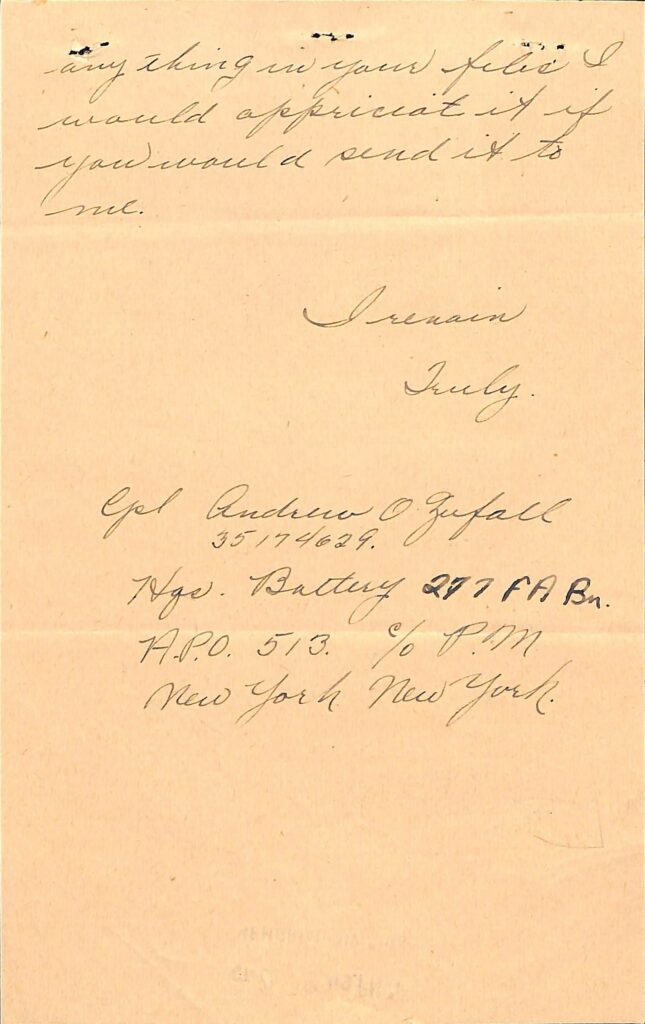 any thing in your files I
would appriciat it if
you would send it to
me.
I remain
Truly.
Cpl Andrew O Zufall
35174629.
Hqs. Battery 277 FA Bn.
A.P.O. 513. c/o P.M
New York New York.